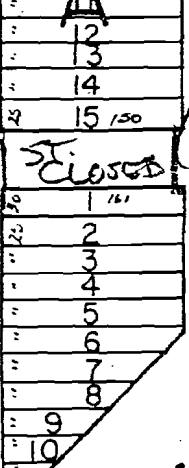 11
" 12
" 13
" 14
25 15 150
ST.
CLOSED
30 1 161
25 2
" 3
" 4
" 5
" 6
" 7
" 8
" 9
" 10